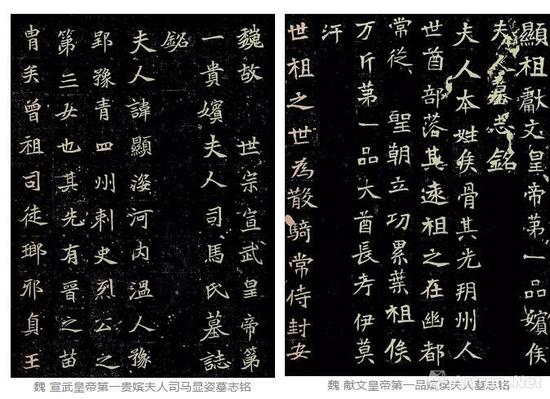 魏故 世宗宣武皇帝第
一貴嬪夫人司馬氏墓誌
銘
夫人諱顯姿河內溫人豫
郢豫青四州刺史烈公之
第三女也其先有晉之苗
胄矣曾祖司徒瑯邪貞王
魏 宣武皇帝第一贵嫔夫人司马显姿墓志铭
顯祖獻文皇帝第一品嬪侯
夫人墓志銘
夫人本姓侯骨其先朔州人
世酋部落其遠祖之在幽都
常從 聖朝立功累葉祖俟
万斤第一品大酋長考伊莫
汗
世祖之世為散騎常侍封安
魏 献文皇帝第一品嫔侯夫人墓志铭